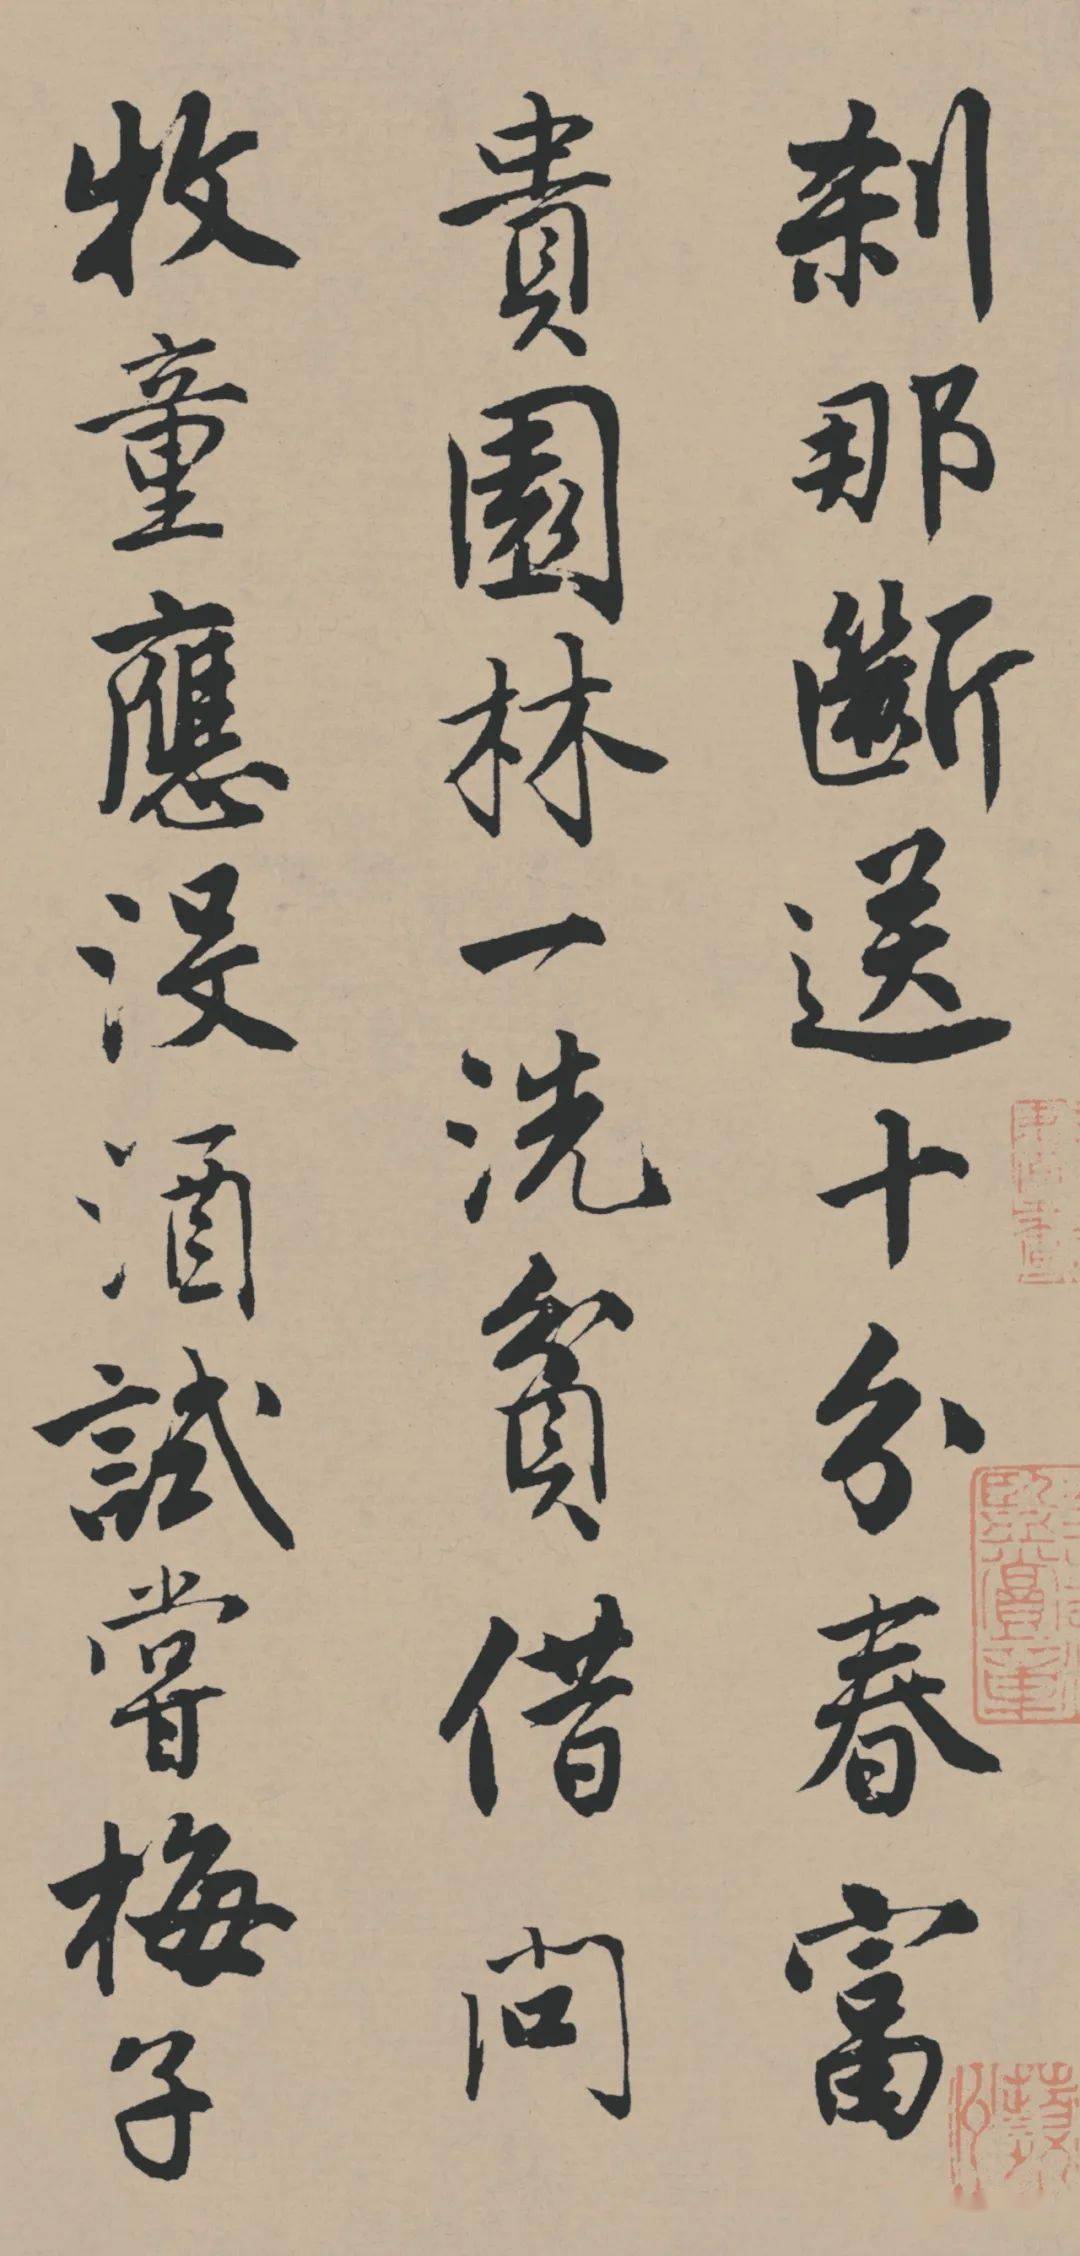 刹那斷送十分春富
貴園林一洗貧借問
牧童應没酒試嘗梅子